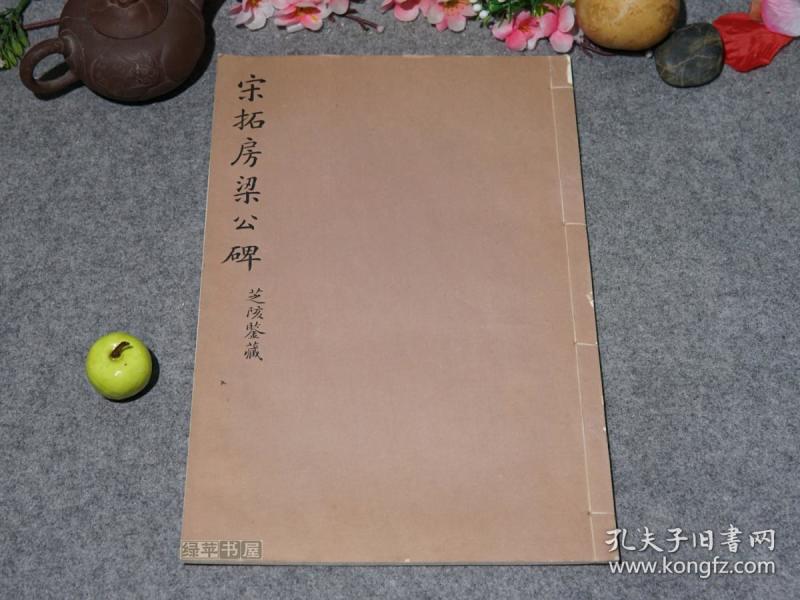 宋拓房梁公碑
芝陔鉴藏
绿苹书屋
孔夫子旧書网
www.kongfz.com